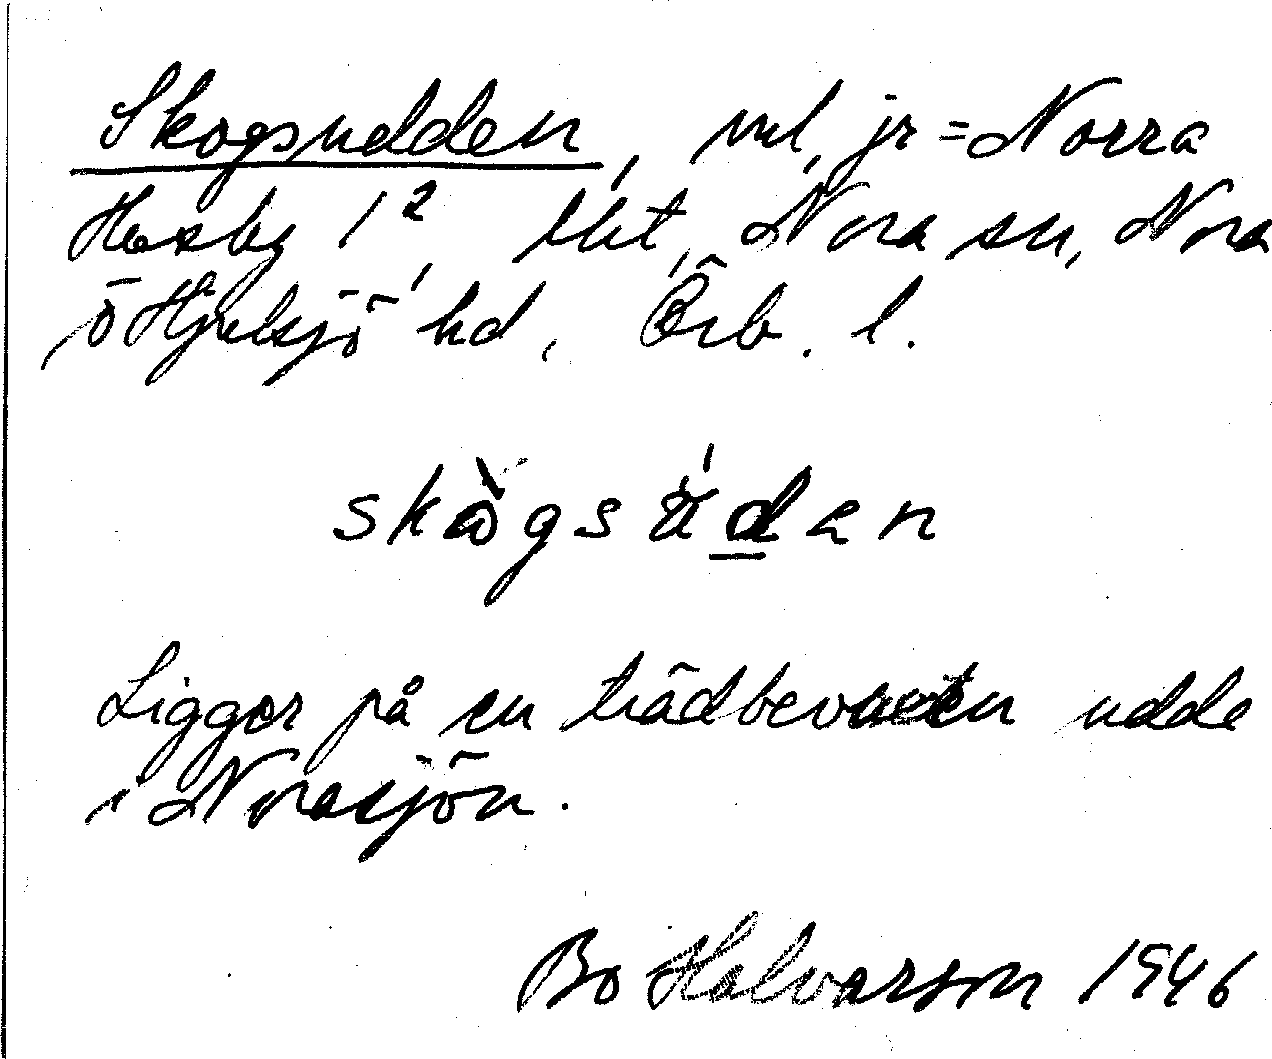 Skogsudden, vul, jr = Norra
Husby 1², lht, Nora sn, Nora
o Hjulsjö hd, Örb. l.
skògsúdan
Ligger på en trädbevuxen udde
i Norasjön.
Bo Halvarson 1946